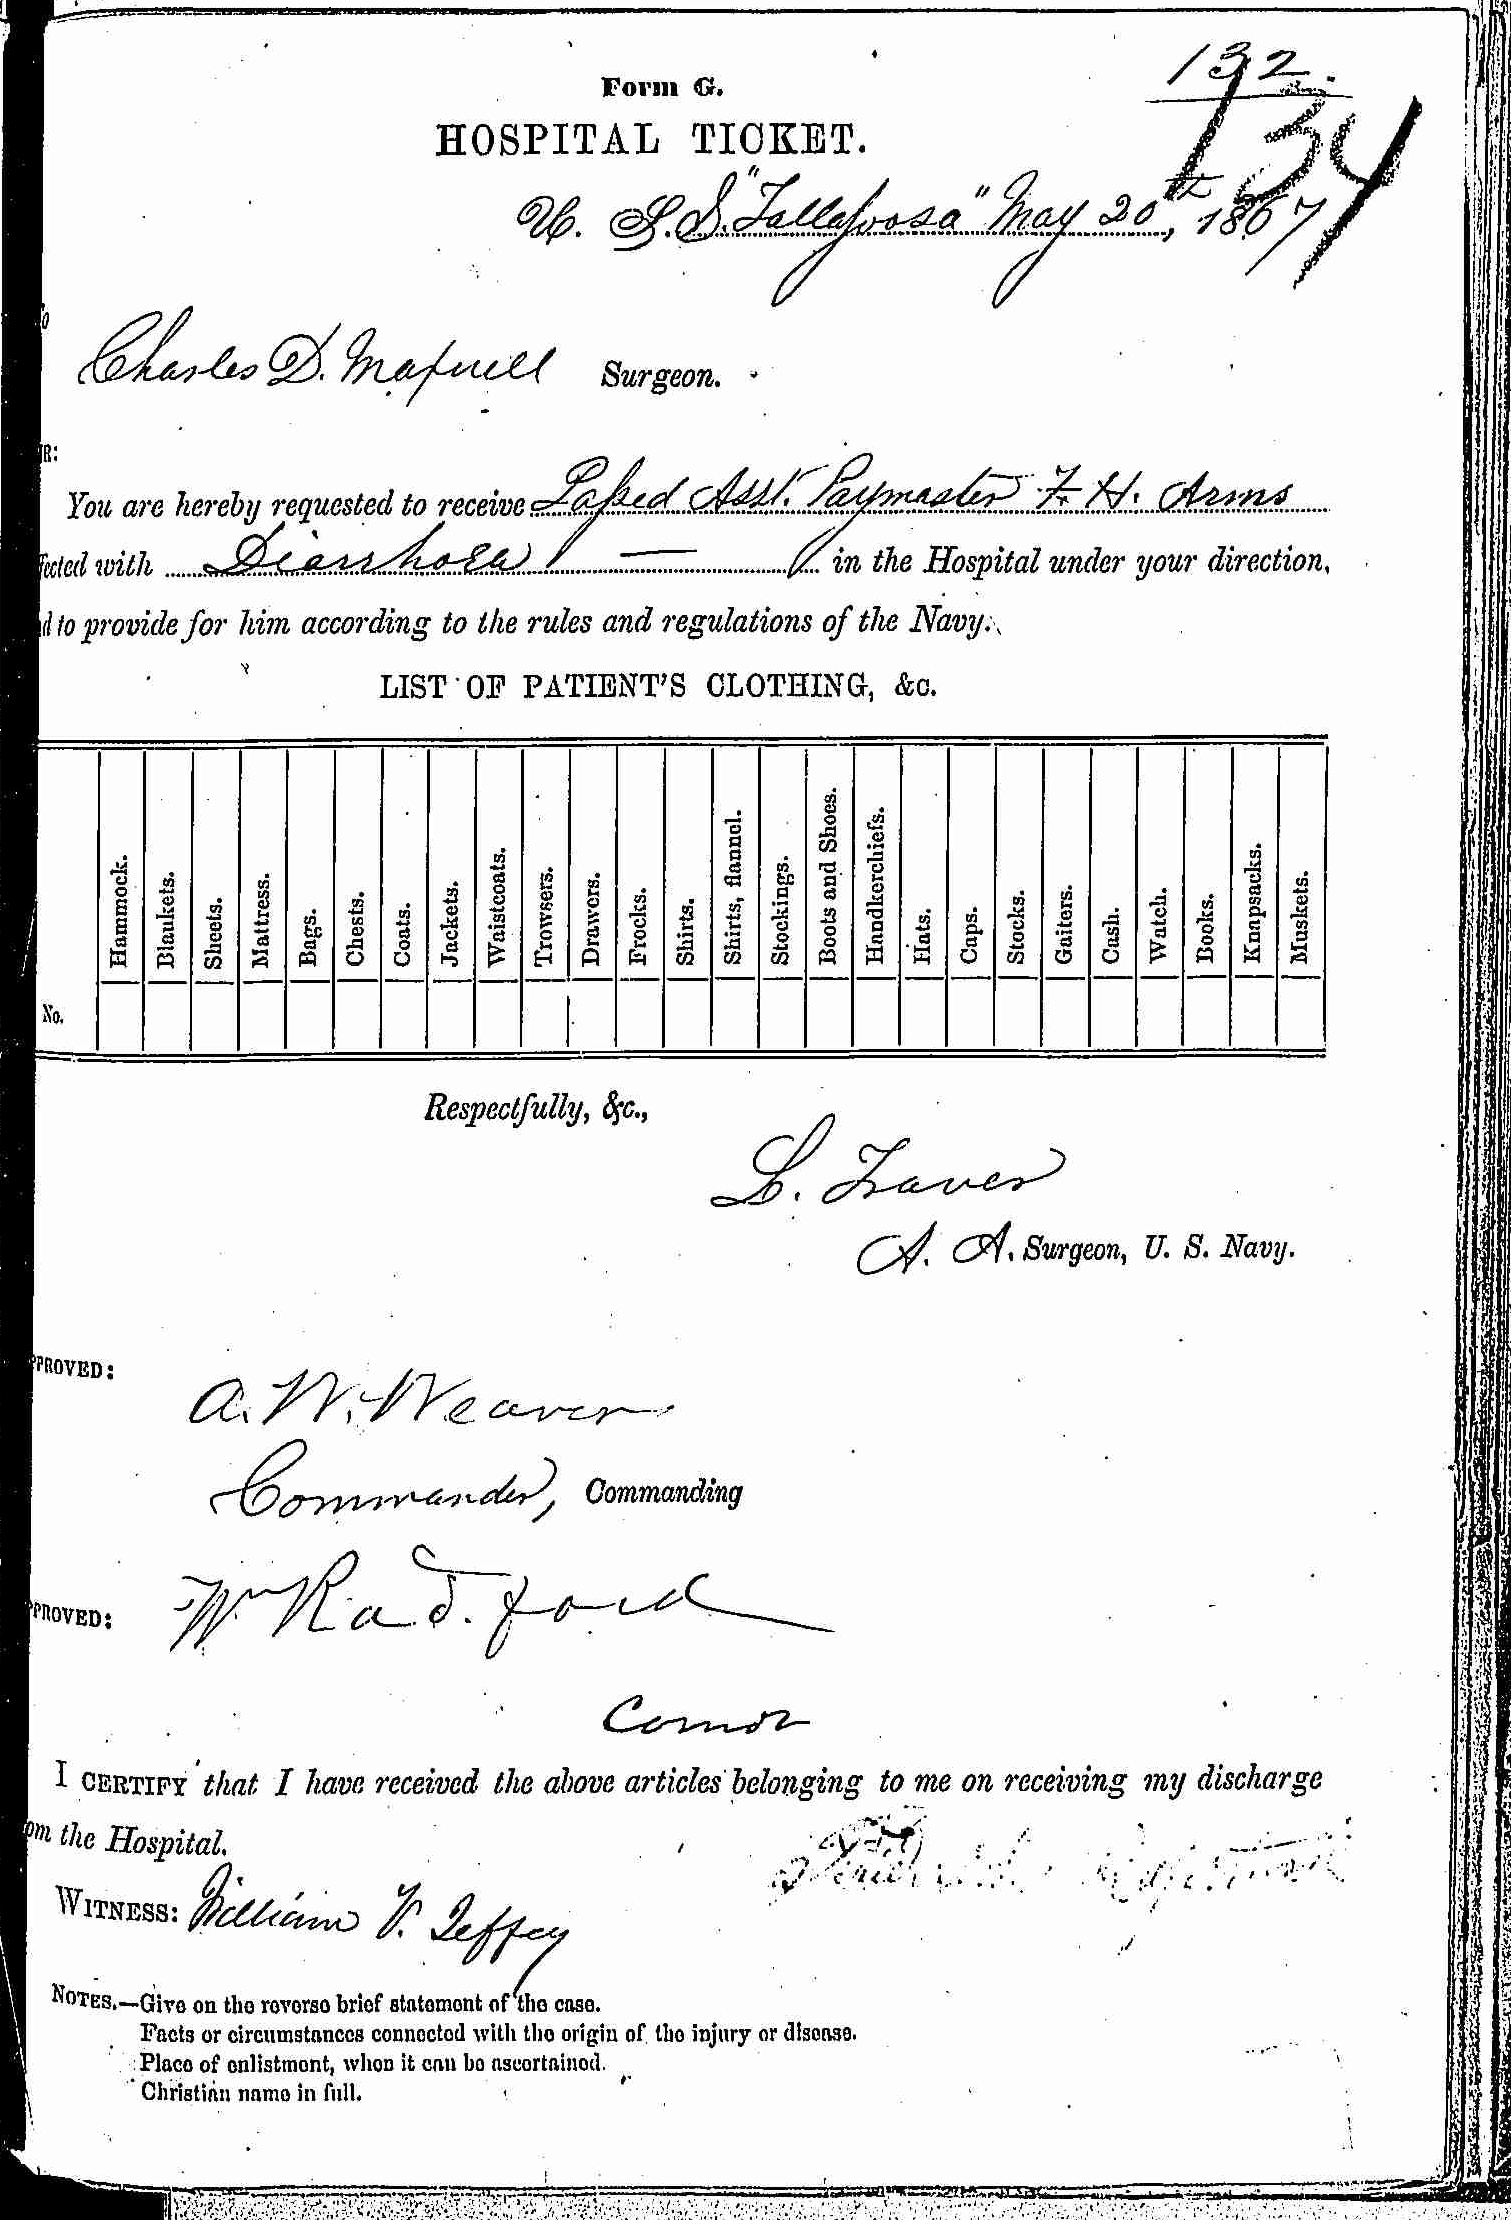 132.
134
Form G.
HOSPITAL TICKET.
U. S. S. "Tallapoosa" May 20th, 1867
To
Charles D. Maxwell Surgeon.
SIR:
You are hereby requested to receive Passed Asst. Paymaster F. H. Arms
fected with Diarrhoea in the Hospital under your direction,
d to provide for him according to the rules and regulations of the Navy.
LIST OF PATIENT'S CLOTHING, &c.
Hammock. Blankets. Sheets. Mattress. Bags. Chests. Coats. Jackets. Waistcoats. Trowsers. Drawers. Frocks. Shirts. Shirts, flannel. Stockings. Boots and Shoes. Handkerchiefs. Hats. Caps. Stocks. Gaiters. Cash. Watch. Books. Knapsacks. Muskets.
No.
Respectfully, &c.,
L. Traver
A. A. Surgeon, U. S. Navy.
PPROVED:
A. W. Weaver
Commander, Commanding
PPROVED:
Wm Radford
Comdr
I CERTIFY that I have received the above articles belonging to me on receiving my discharge
om the Hospital.
WITNESS: William V. Jeffey
NOTES.—Give on the reverse brief statement of the case.
Facts or circumstances connected with the origin of the injury or disease.
Place of enlistment, when it can be ascertained.
Christian name in full.